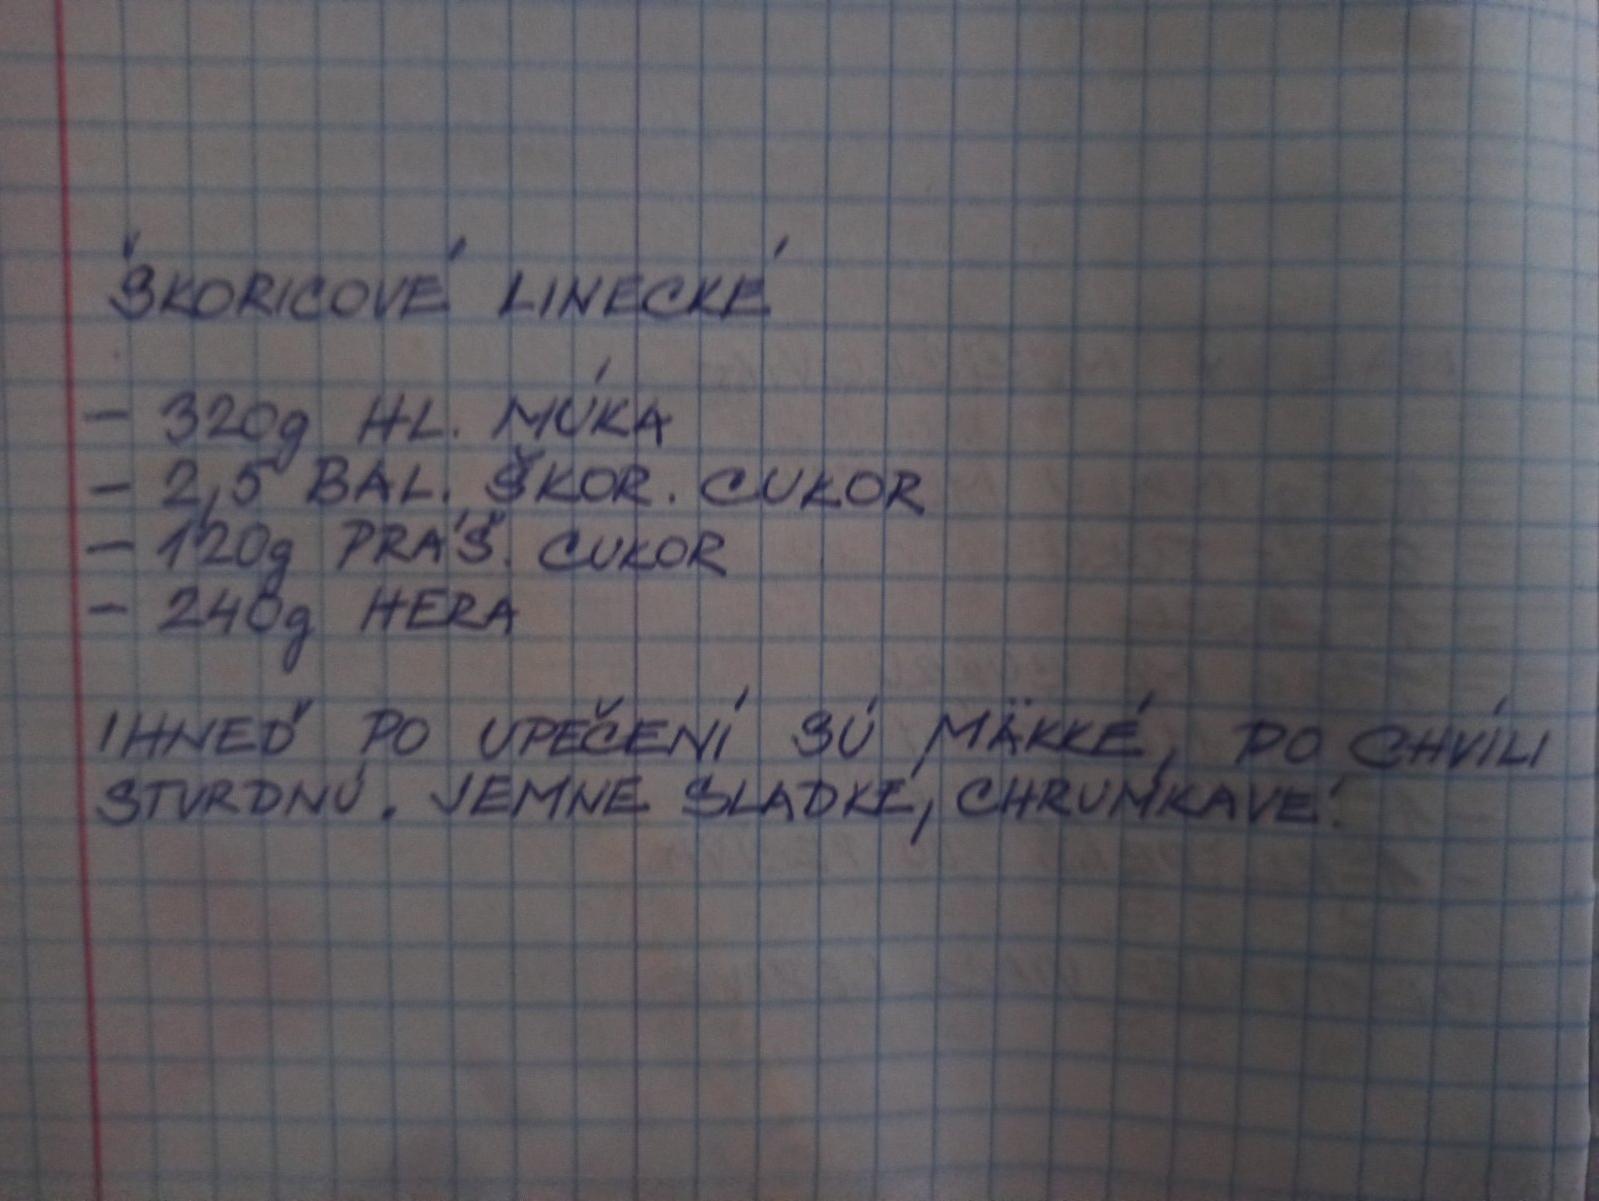 ŠKORICOVÉ LINECKÉ
- 320g HL. MÚKA
- 2,5 BAL. ŠKOR. CUKOR
- 120g PRÁŠ. CUKOR
- 240g HERA
IHNEĎ PO UPEČENÍ SÚ MÄKKÉ, PO CHVÍLI
STVRDNÚ. JEMNE SLADKÉ, CHRUMKAVÉ.